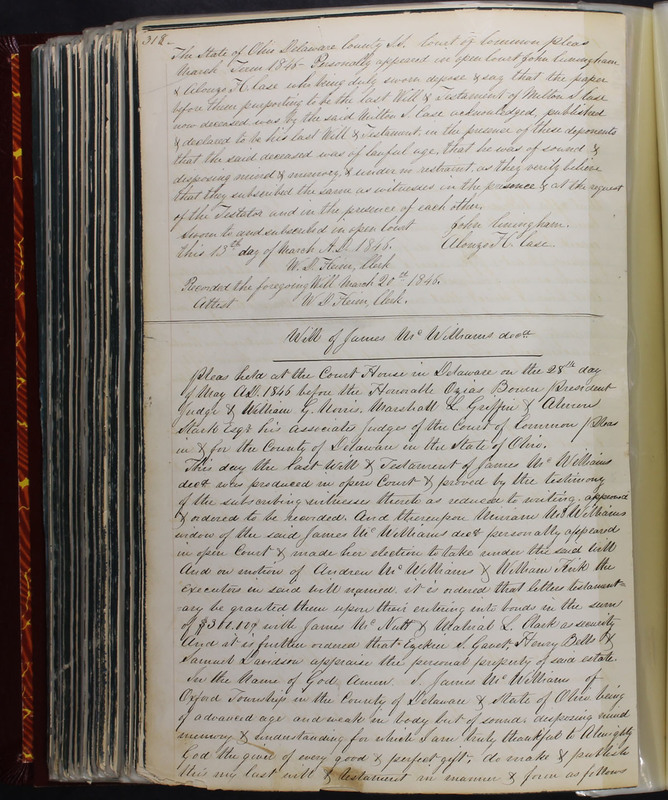 318
The State of Ohio Delaware County SS. Court of Common Pleas
March Term 1846 - Personally appeared in open Court John Cuningham
& Alonzo H. Case who being duly sworn depose & say that the paper
before them purporting to be the last Will & Testament of Milton S. Case
now deceased was by the said Milton S. Case acknowledged, published
& declared to be his last Will & Testament in the presence of these deponents
that the said deceased was of lawful age, that he was of sound &
disposing mind & memory, & under no restraint, as they verily believe
that they subscribed the same as witnesses in the presence & at the request
of the Testator and in the presence of each other.
Sworn to and subscribed in open Court John Cuningham.
this 13th day of March A.D. 1846. Alonzo H. Case
W. D. Heim, Clerk
Recorded the foregoing Will March 20th 1846.
Attest W. D. Heim, Clerk.
Will of James Mc Williams decd
Pleas held at the Court House in Delaware on the 28th day
of May A.D. 1846 before the Honorable Ozias Bowen President
Judge & William G. Norris, Marshall L. Griffin & Almon
Stark Esqs his associates Judges of the Court of Common Pleas
in & for the County of Delaware in the State of Ohio.
This day the last Will & Testament of James Mc Williams
decd was produced in open Court & proved by the testimony
of the subscribing witnesses thereto as reduced to writing, approved
& ordered to be recorded. And thereupon Miriam Mc Williams
widow of the said James Mc Williams decd personally appeared
in open Court & made her election to take under the said will
And on motion of Andrew Mc Williams & William Fink the
Executors in said will named it is ordered that letters testament=
ary be granted them upon their entering into bonds in the sum
of with James Mc Nutt & L. Clark as security
And it is further ordered that S. Henry Bills &
Samuel Davidson appraise the personal property of said estate.
In the Name of God, Amen. I James Mc Williams of
Oxford Township in the County of Delaware & State of Ohio being
of advanced age and weak in body but of sound disposing mind
memory & understanding for which I am truly thankful to Almighty
God the giver of every good & perfect gift, do make & publish
this my last will & testament in manner & form as follows